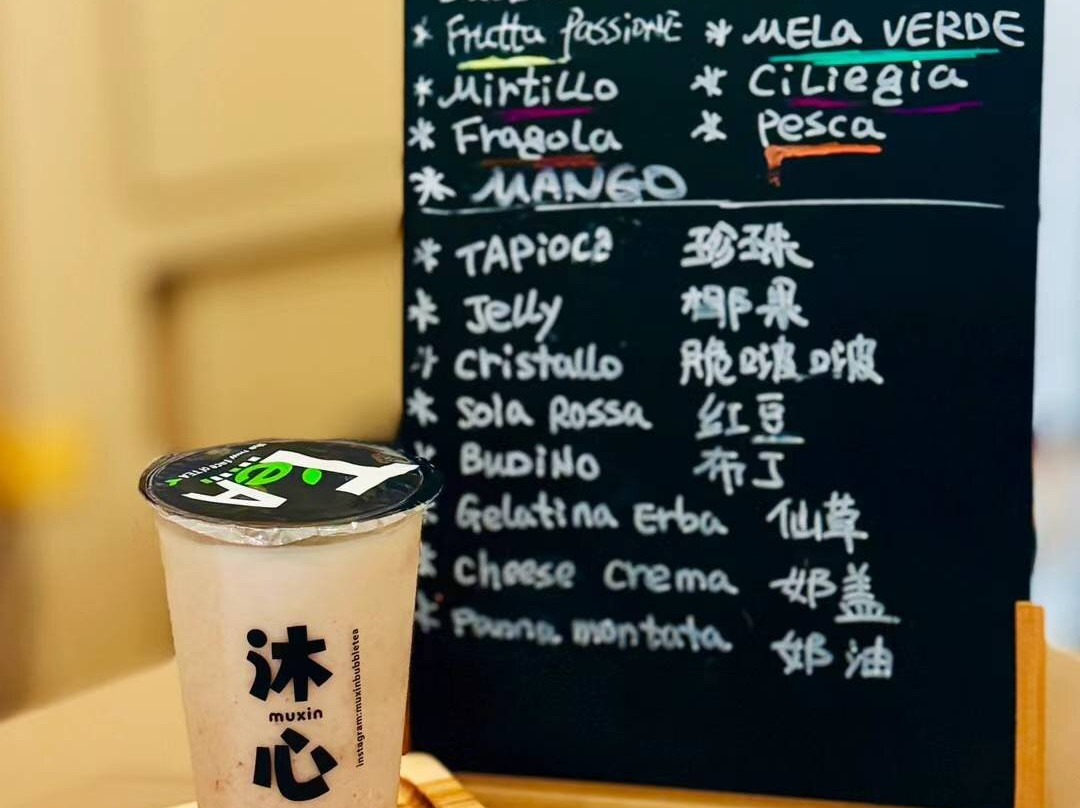 * Frutta passione * MELA VERDE
* Mirtillo * Ciliegia
* Fragola * Pesca
* MANGO
* TAPioca 珍珠
* Jelly 椰果
* Cristallo 脆啵啵
* Sola Rossa 红豆
* BUDiNo 布丁
* Gelatina Erba 仙草
* cheese crema 奶盖
* Panna montata 奶油
TEA
沐
muxin
心
instagram:muxinbubbletea